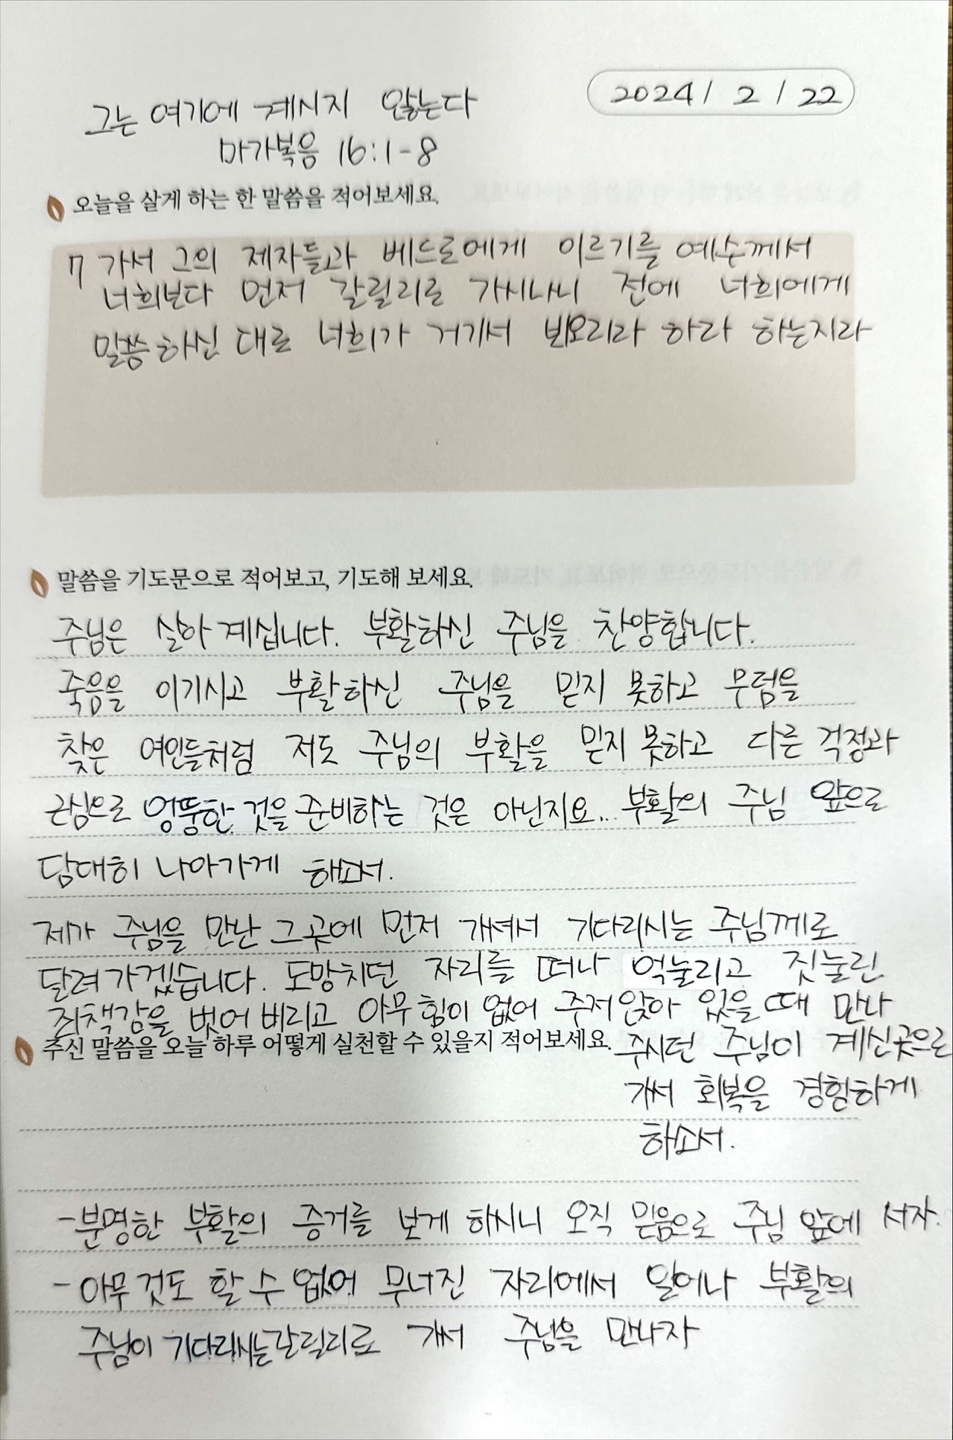 2024 / 2 / 22
그는 여기에 계시지 않는다
마가복음 16:1-8
오늘을 살게 하는 한 말씀을 적어보세요.
7 가서 그의 제자들과 베드로에게 이르기를 예수께서
너희보다 먼저 갈릴리로 가시나니 전에 너희에게
말씀하신 대로 너희가 거기서 뵈오리라 하라 하는지라
말씀을 기도문으로 적어보고, 기도해 보세요.
주님은 살아 계십니다. 부활하신 주님을 찬양합니다.
죽음을 이기시고 부활하신 주님을 믿지 못하고 무덤을
찾은 여인들처럼 저도 주님의 부활을 믿지 못하고 다른 걱정과
근심으로 엉뚱한 것을 준비하는 것은 아닌지요.. 부활의 주님 앞으로
담대히 나아가게 하소서.
제가 주님을 만난 그 곳에 먼저 가셔서 기다리시는 주님께로
달려가겠습니다. 도망치던 자리를 떠나 억눌리고 짓눌린
죄책감을 벗어 버리고 아무 힘이 없어 주저 앉아 있을 때 만나
주신 말씀을 오늘 하루 어떻게 실천할 수 있을지 적어보세요.
주시던 주님이 계신곳으로
가서 회복을 경험하게
하소서.
- 분명한 부활의 증거를 보게 하시니 오직 믿음으로 주님 앞에 서자.
- 아무 것도 할 수 없어 무너진 자리에서 일어나 부활의
주님이 기다리시는 갈릴리로 가서 주님을 만나자